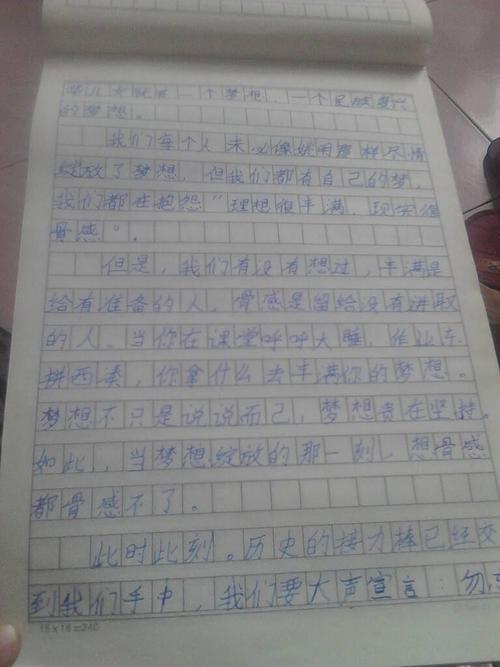 华儿女就有一个梦想，一个民族复兴
的梦想。
我们每个人未必像姚明那样尽情
绽放了梦想，但我们都有自己的梦，
我们都在抱怨“理想很丰满，现实很
骨感”。
但是，我们有没有想过，丰满是
给有准备的人，骨感是留给没有进取
的人。当你在课堂呼呼大睡，作业东
拼西凑，你拿什么去丰满你的梦想。
梦想不只是说说而已，梦想贵在坚持。
如此，当梦想绽放的那一刻，想骨感
都骨感不了。
此时此刻。历史的接力棒已经交
到我们手中，我们要大声宣言：勿忘
15×16=240